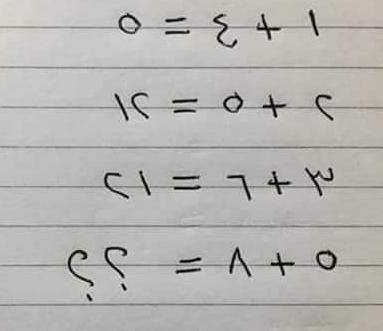 ١ + ٤ = ٥
٢ + ٥ = ١٢
٣ + ٦ = ٢١
٥ + ٨ = ؟؟